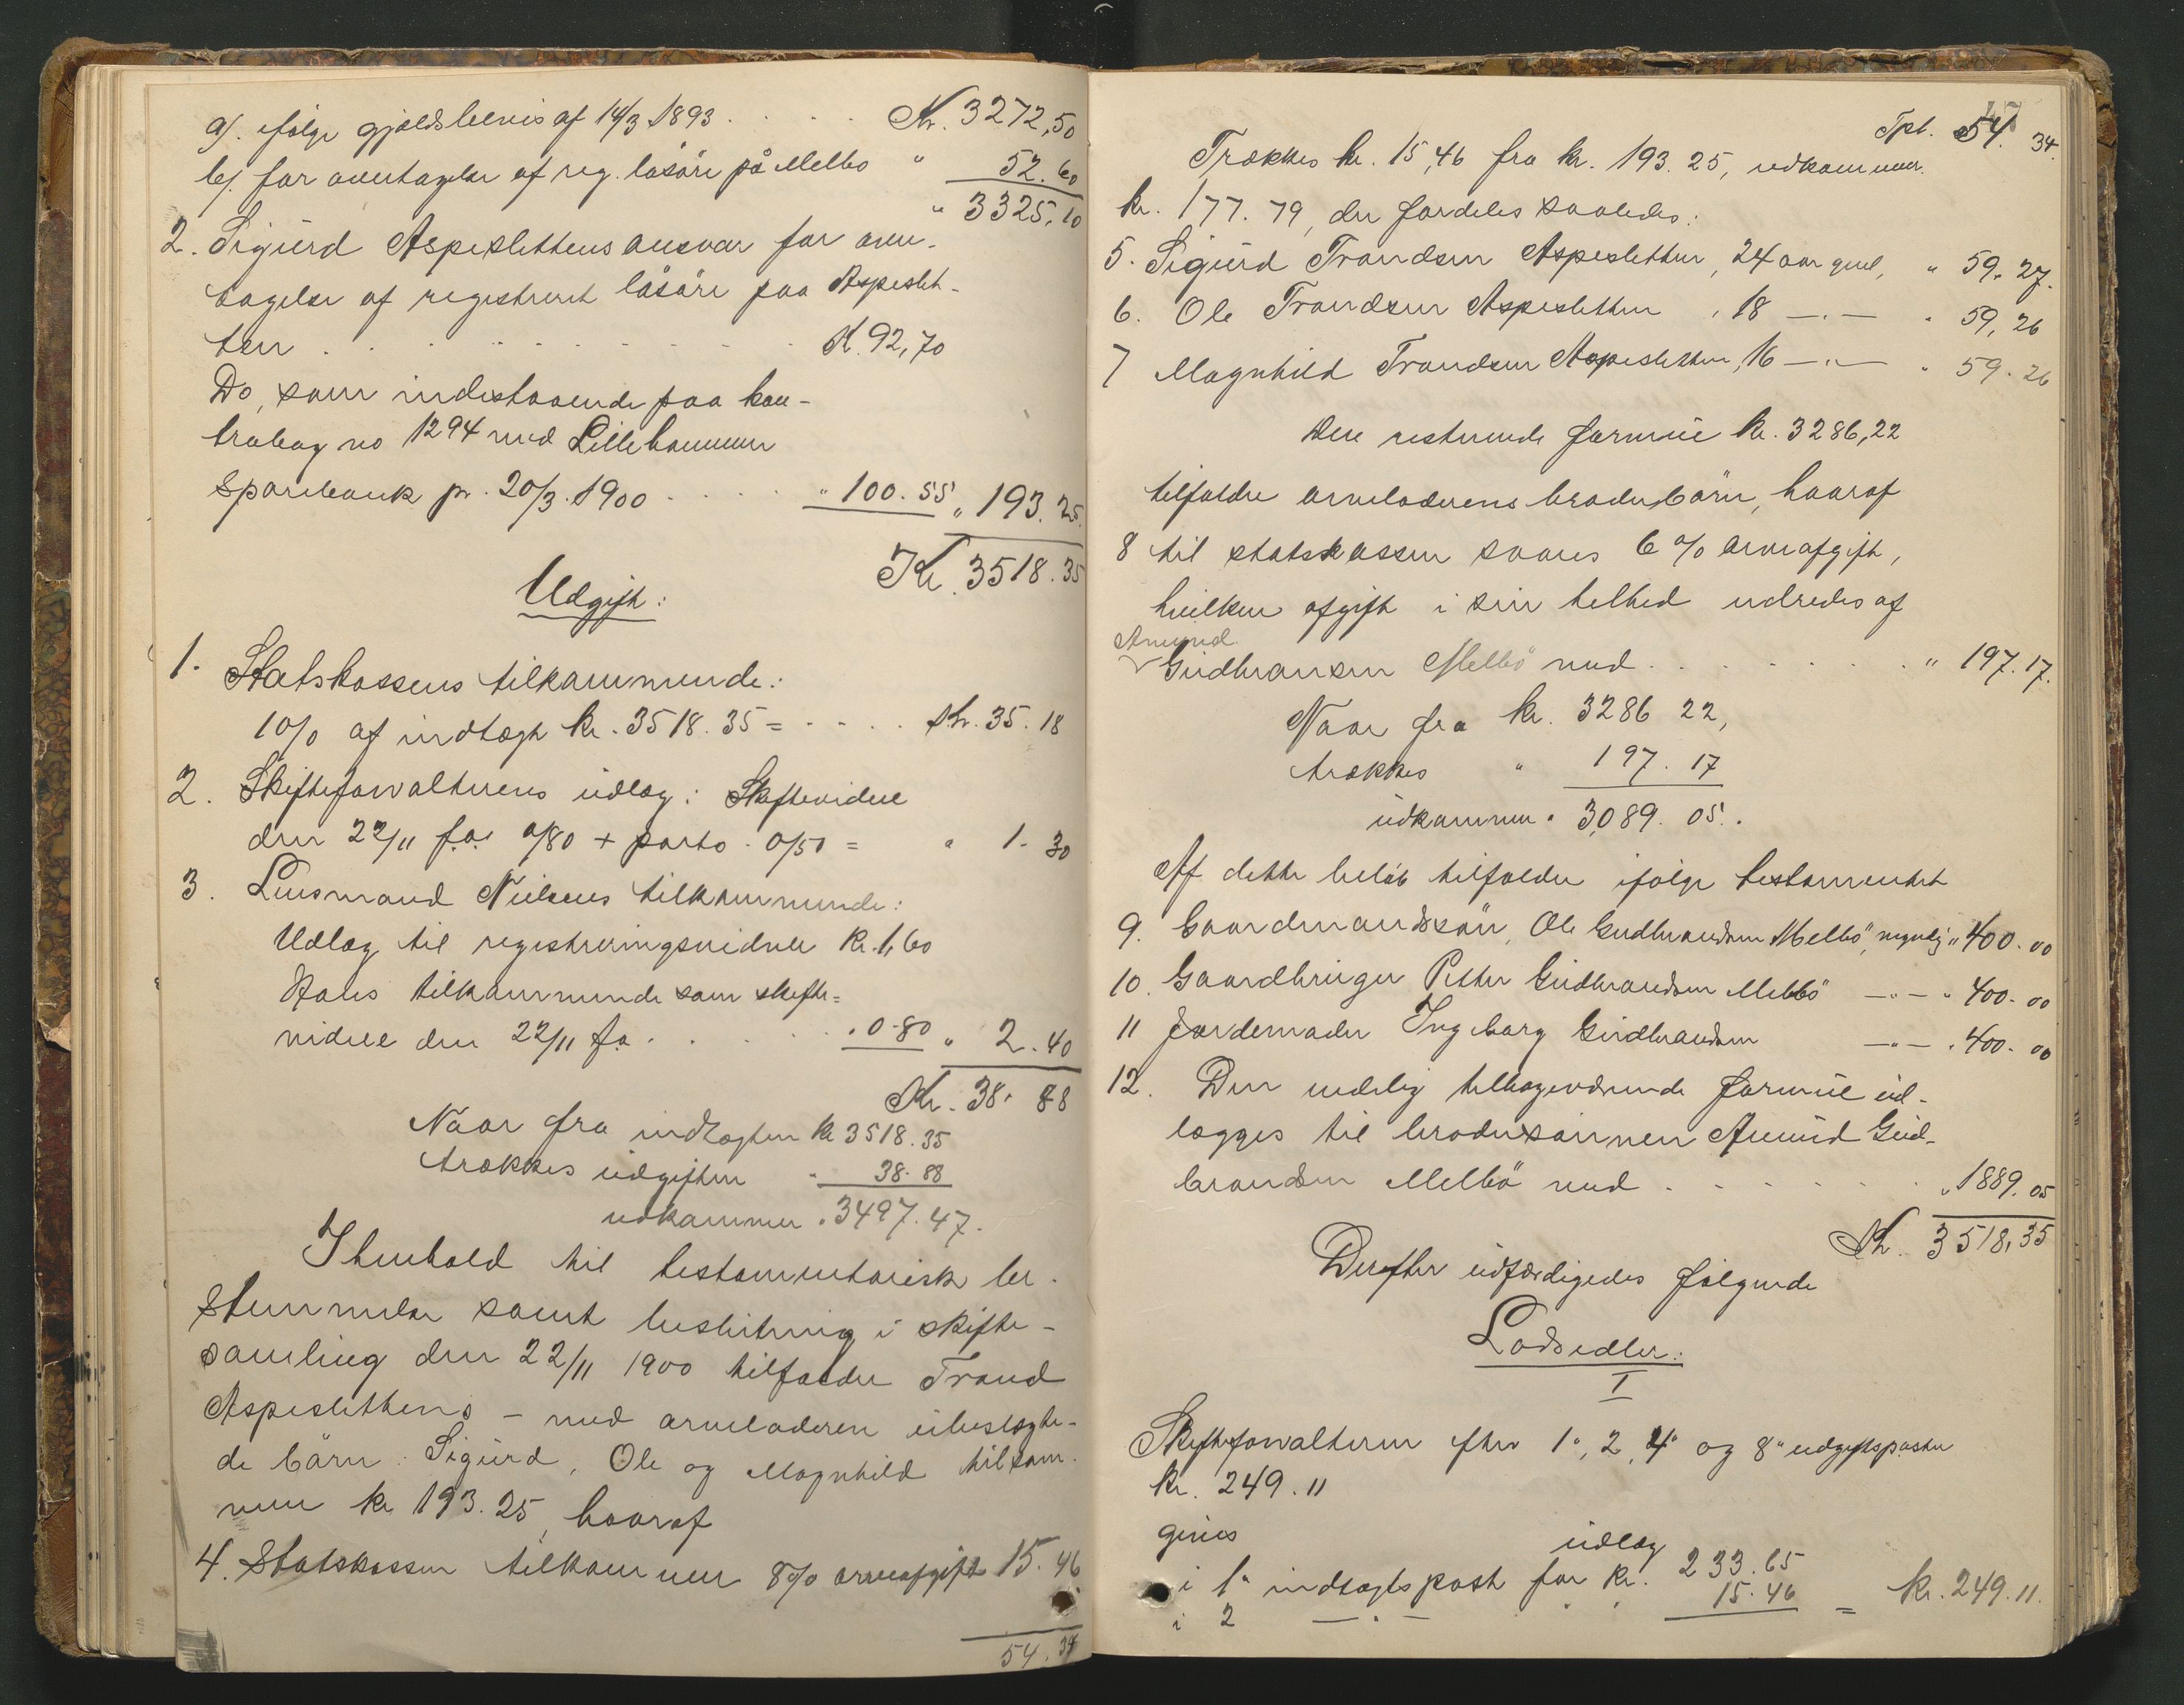 a/. ifølge gjældsbevis af 14/3 1893 . . . . Kr. 3272,50
b/. for overtagelse af reg. løsøre på Melbø " 52.60
" 3325.10
2. Sigurd Aspeslettens ansvar for over-
tagelse af registreret løsøre paa Aspeslet-
ten . . . . . . . . . . K. 92,70
Do, som indestaaende paa kon-
trabog no 1294 med Lillehammer
Sparebank pr. 20/3. 1900 . . . . . " 100.55 " 193.25.
Kr. 3518.35
Udgift:
1. Statskassens tilkommende:
1 0/0 af indtægt kr. 3518.35 = . . . . kr. 35.18
2. Skifteforvalterens udlæg: Skiftevidne
den 22/11 f.a. 0/80 + porto. 0/50 = " 1.30
3. Lensmand Nielsens tilkommende:
Udlæg til registreringsvidner kr. 1,60
Hans tilkommende som skifte=
vidne den 22/11 f.a. . . . . . 0.80 " 2.40
Kr. 38.88
Naar fra indtægten kr 3518.35
trækkes udgiften " 38.88
udkommer " 3497.47.
I henhold til testamentarisk be-
stemmelse samt beslutning i skifte-
samling den 22/11 1900 tilfalder Trond
Aspeslettens – med arveladeren ubeslægte-
de børn: Sigurd, Ole og Magnhild tilsam-
men kr 193.25, hvoraf
4. Statskassen tilkommer 8 0/0 arveafgift 15.46
54.34
47
Tpt. 54. 34.
Trækkes kr. 15,46 fra kr. 193.25, udkommer
kr. 177.79, der fordeles saaledes:
5. Sigurd Trondsen Aspesletten, 24 aar gml, " 59.27.
6. Ole Trondsen Aspesletten, 18 —"— " 59,26
7 Magnhild Trondsen Aspesletten, 16 —"— " 59.26
Den resterende formue kr. 3286,22
tilfalder arveladerens broderbørn, hvoraf
8 til statskassen svares 6 0/0 arveafgift,
hvilken afgift i sin helhed udredes af
Amund
Gudbransen Melbø med . . . . . . . " 197.17.
Naar fra kr. 3286 22,
trækkes " 197.17
udkommer " 3,089.05.
Af dette beløb tilfalder ifølge testamentet
9. Gaardmandssøn, Ole Gudbrandsen Melbø, myndig " 400.00
10. Gaardbruger Petter Gudbrandsen Melbø —"— " 400.00
11 Jordemoder Ingeborg Gudbrandsen —"— " 400.00
12. Den endelig tilbageværende formue ud-
lægges til brodersønnen Amund Gud-
brandsen Melbø med . . . . . . . " 1889.05
Kr. 3518,35
Derefter udfærdigedes følgende
Lodsedler:
I
Skifteforvalteren efter 1", 2, 4" og 8" udgiftsposter
kr. 249.11
gives udlæg
i 1" indtægtspost for kr. 233.65
i 2 —"— " " 15.46 = kr. 249.11.